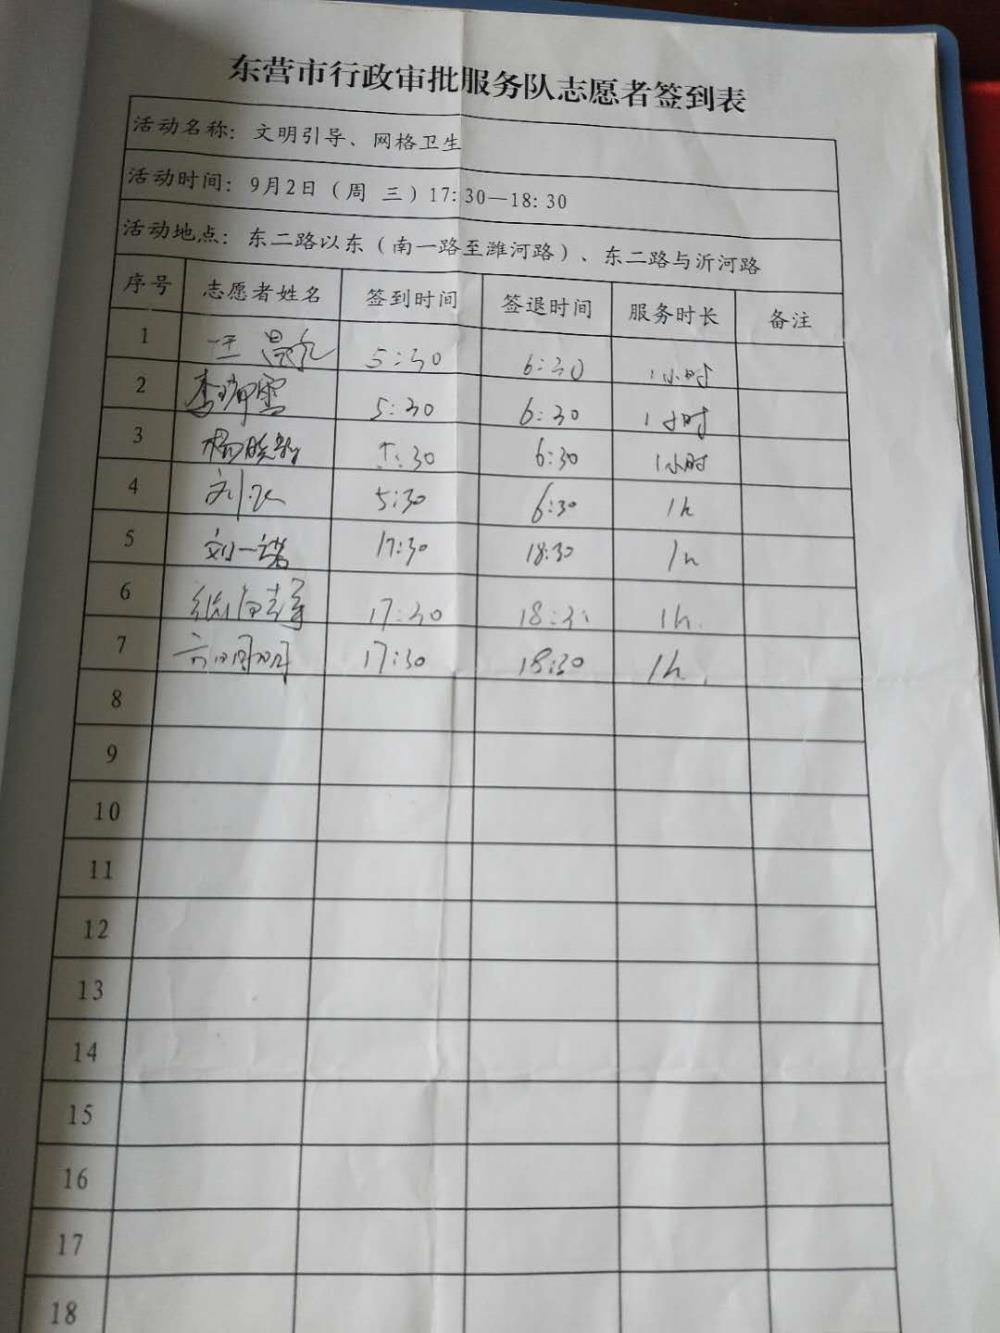 东营市行政审批服务队志愿者签到表
活动名称：文明引导、网格卫生
活动时间：9月2日（周 三）17:30—18:30
活动地点：东二路以东（南一路至潍河路）、东二路与沂河路
序号 志愿者姓名 签到时间 签退时间 服务时长 备注
1 王 5:30 6:30 1小时
2 李 5:30 6:30 1小时
3 杨晓 5:30 6:30 1小时
4 刘 5:30 6:30 1h
5 刘一诺 17:30 18:30 1h
6 17:30 18:30 1h.
7 17:30 18:30 1h.
8
9
10
11
12
13
14
15
16
17
18